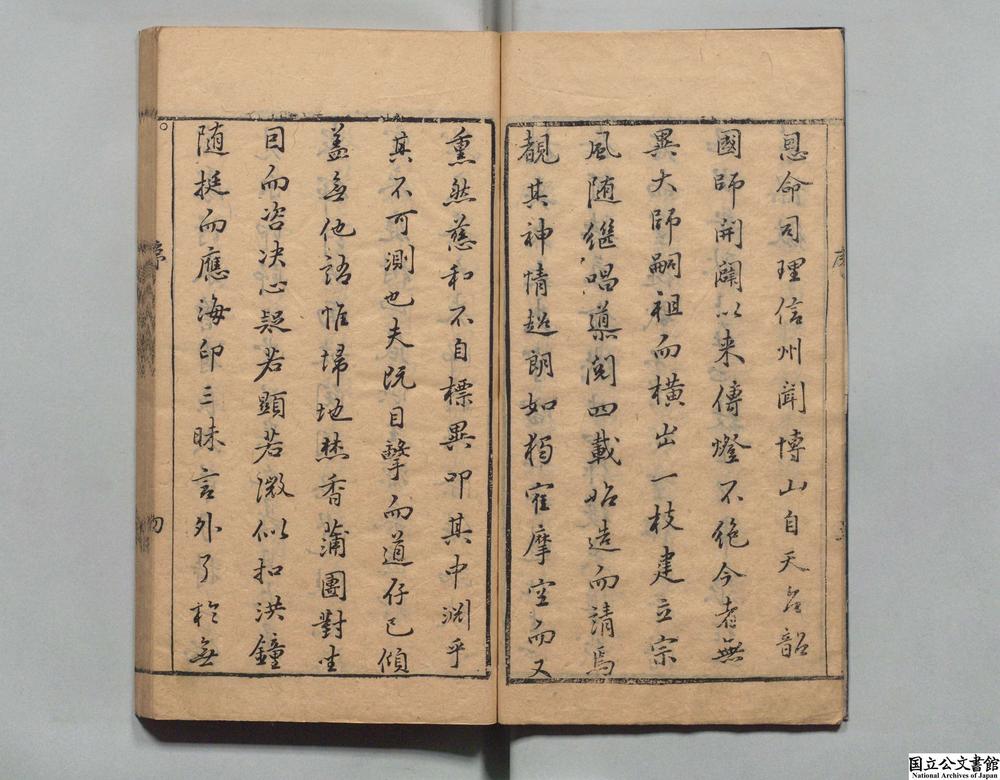 恩命司理信州聞博山自天台韶
國師開闢以来傳燈不絶今者無
異大師嗣祖而横出一枝建立宗
風随繼唱導閲四載始造而請焉
覩其神情超朗如獨寉摩空而又
熏然慈和不自標異叩其中淵乎
其不可測也夫既目擊而道存已傾
盖無他語惟埽地焚香蒲團對坐
日而咨决心疑若顯若微似扣洪鐘
随挺而應海印三昧言外了於無
序
序
国立公文書館
National Archives of Japan